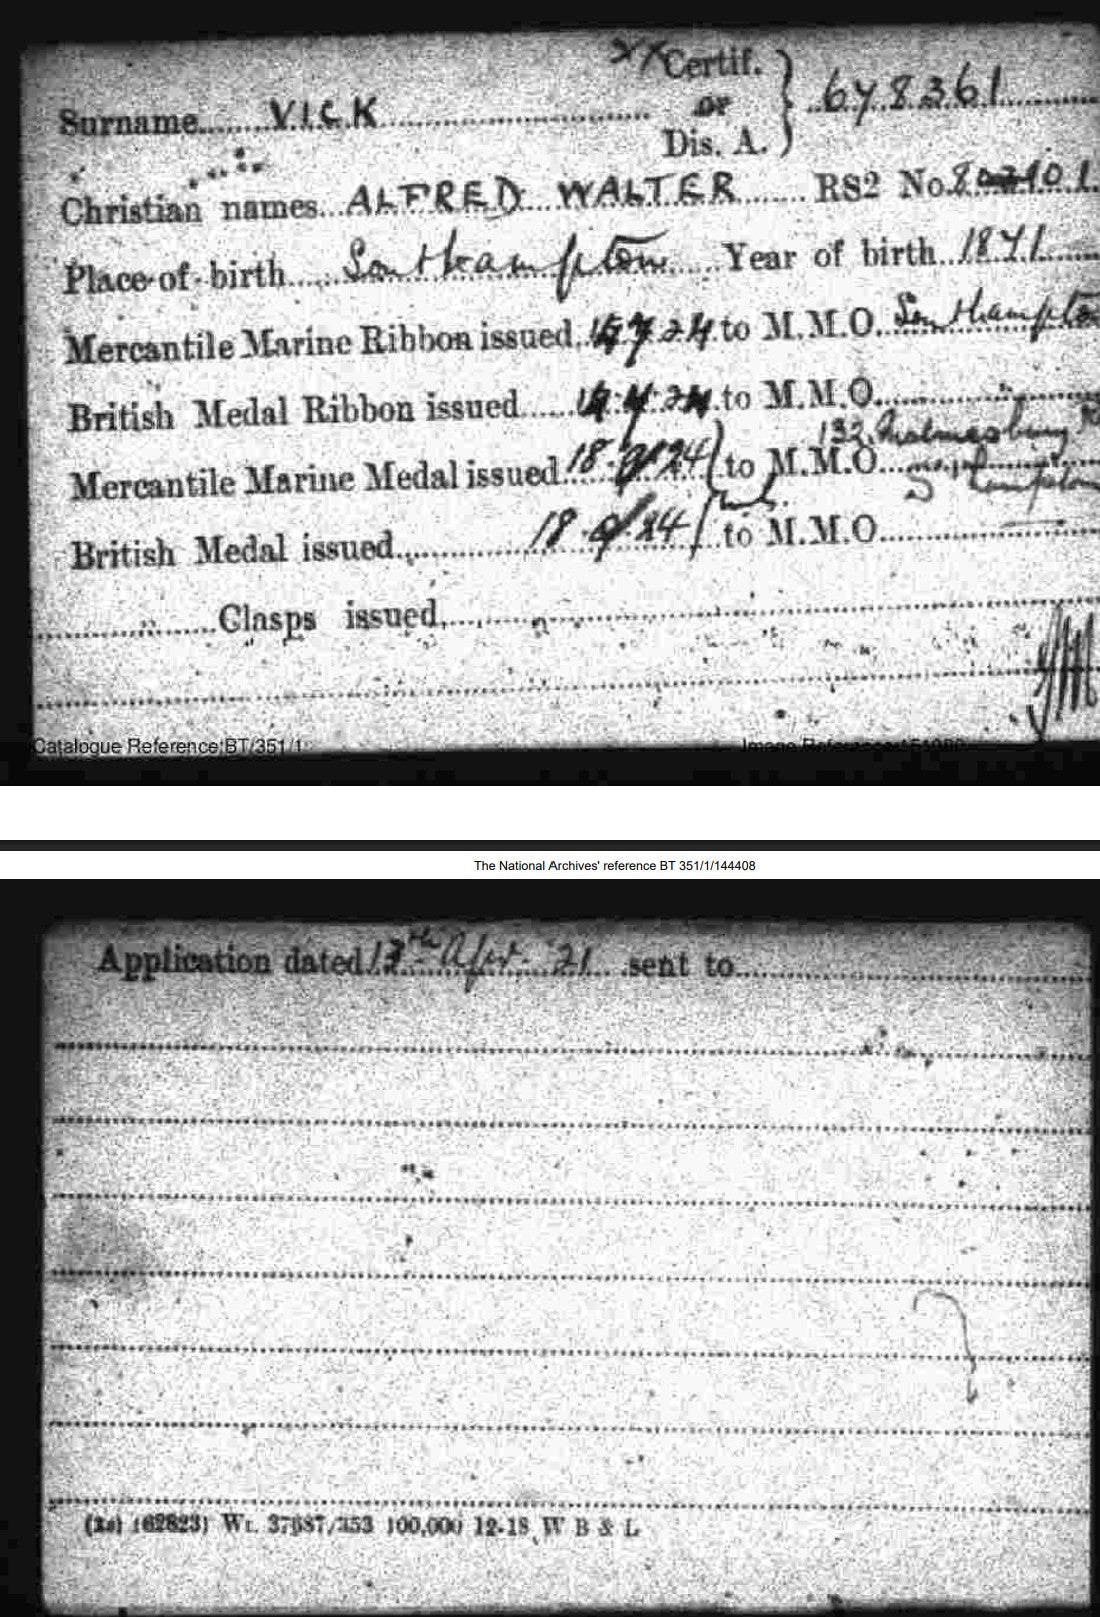 Certif.
Surname VICK or 648361
Dis. A.
Christian names ALFRED WALTER RS2 No.
Place of birth Southampton Year of birth 1871
Mercantile Marine Ribbon issued to M.M.O. Southampton
British Medal Ribbon issued to M.M.O.
Mercantile Marine Medal issued 18 24 to M.M.O.
British Medal issued 18 24 to M.M.O.
Clasps issued
Catalogue Reference:BT/351/1
The National Archives' reference BT 351/1/144408
Application dated 13th Apr. 21 sent to
100,000 12-18 W B & L